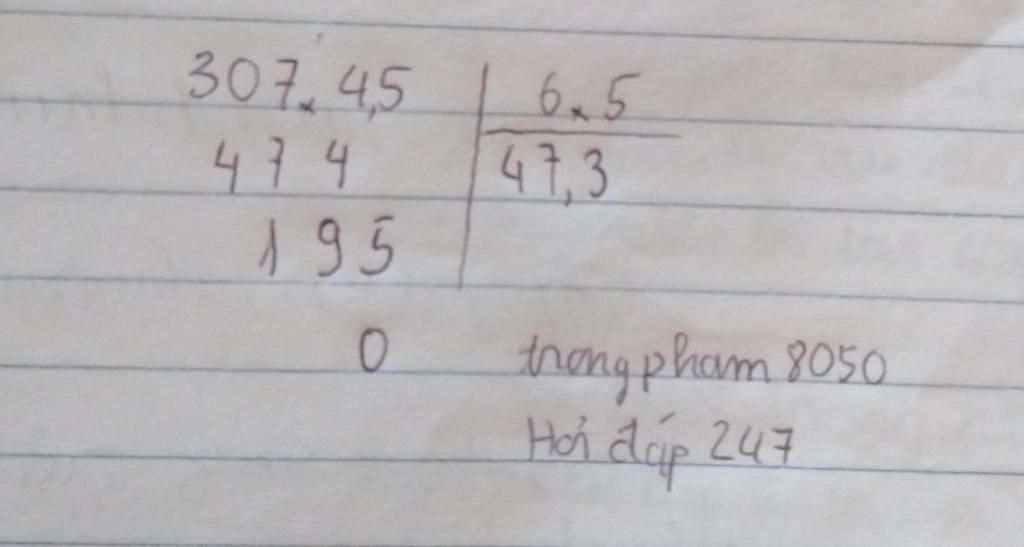 307 4,5 6 5
474 47,3
195
0 trongpham8050
Hỏi đáp 247